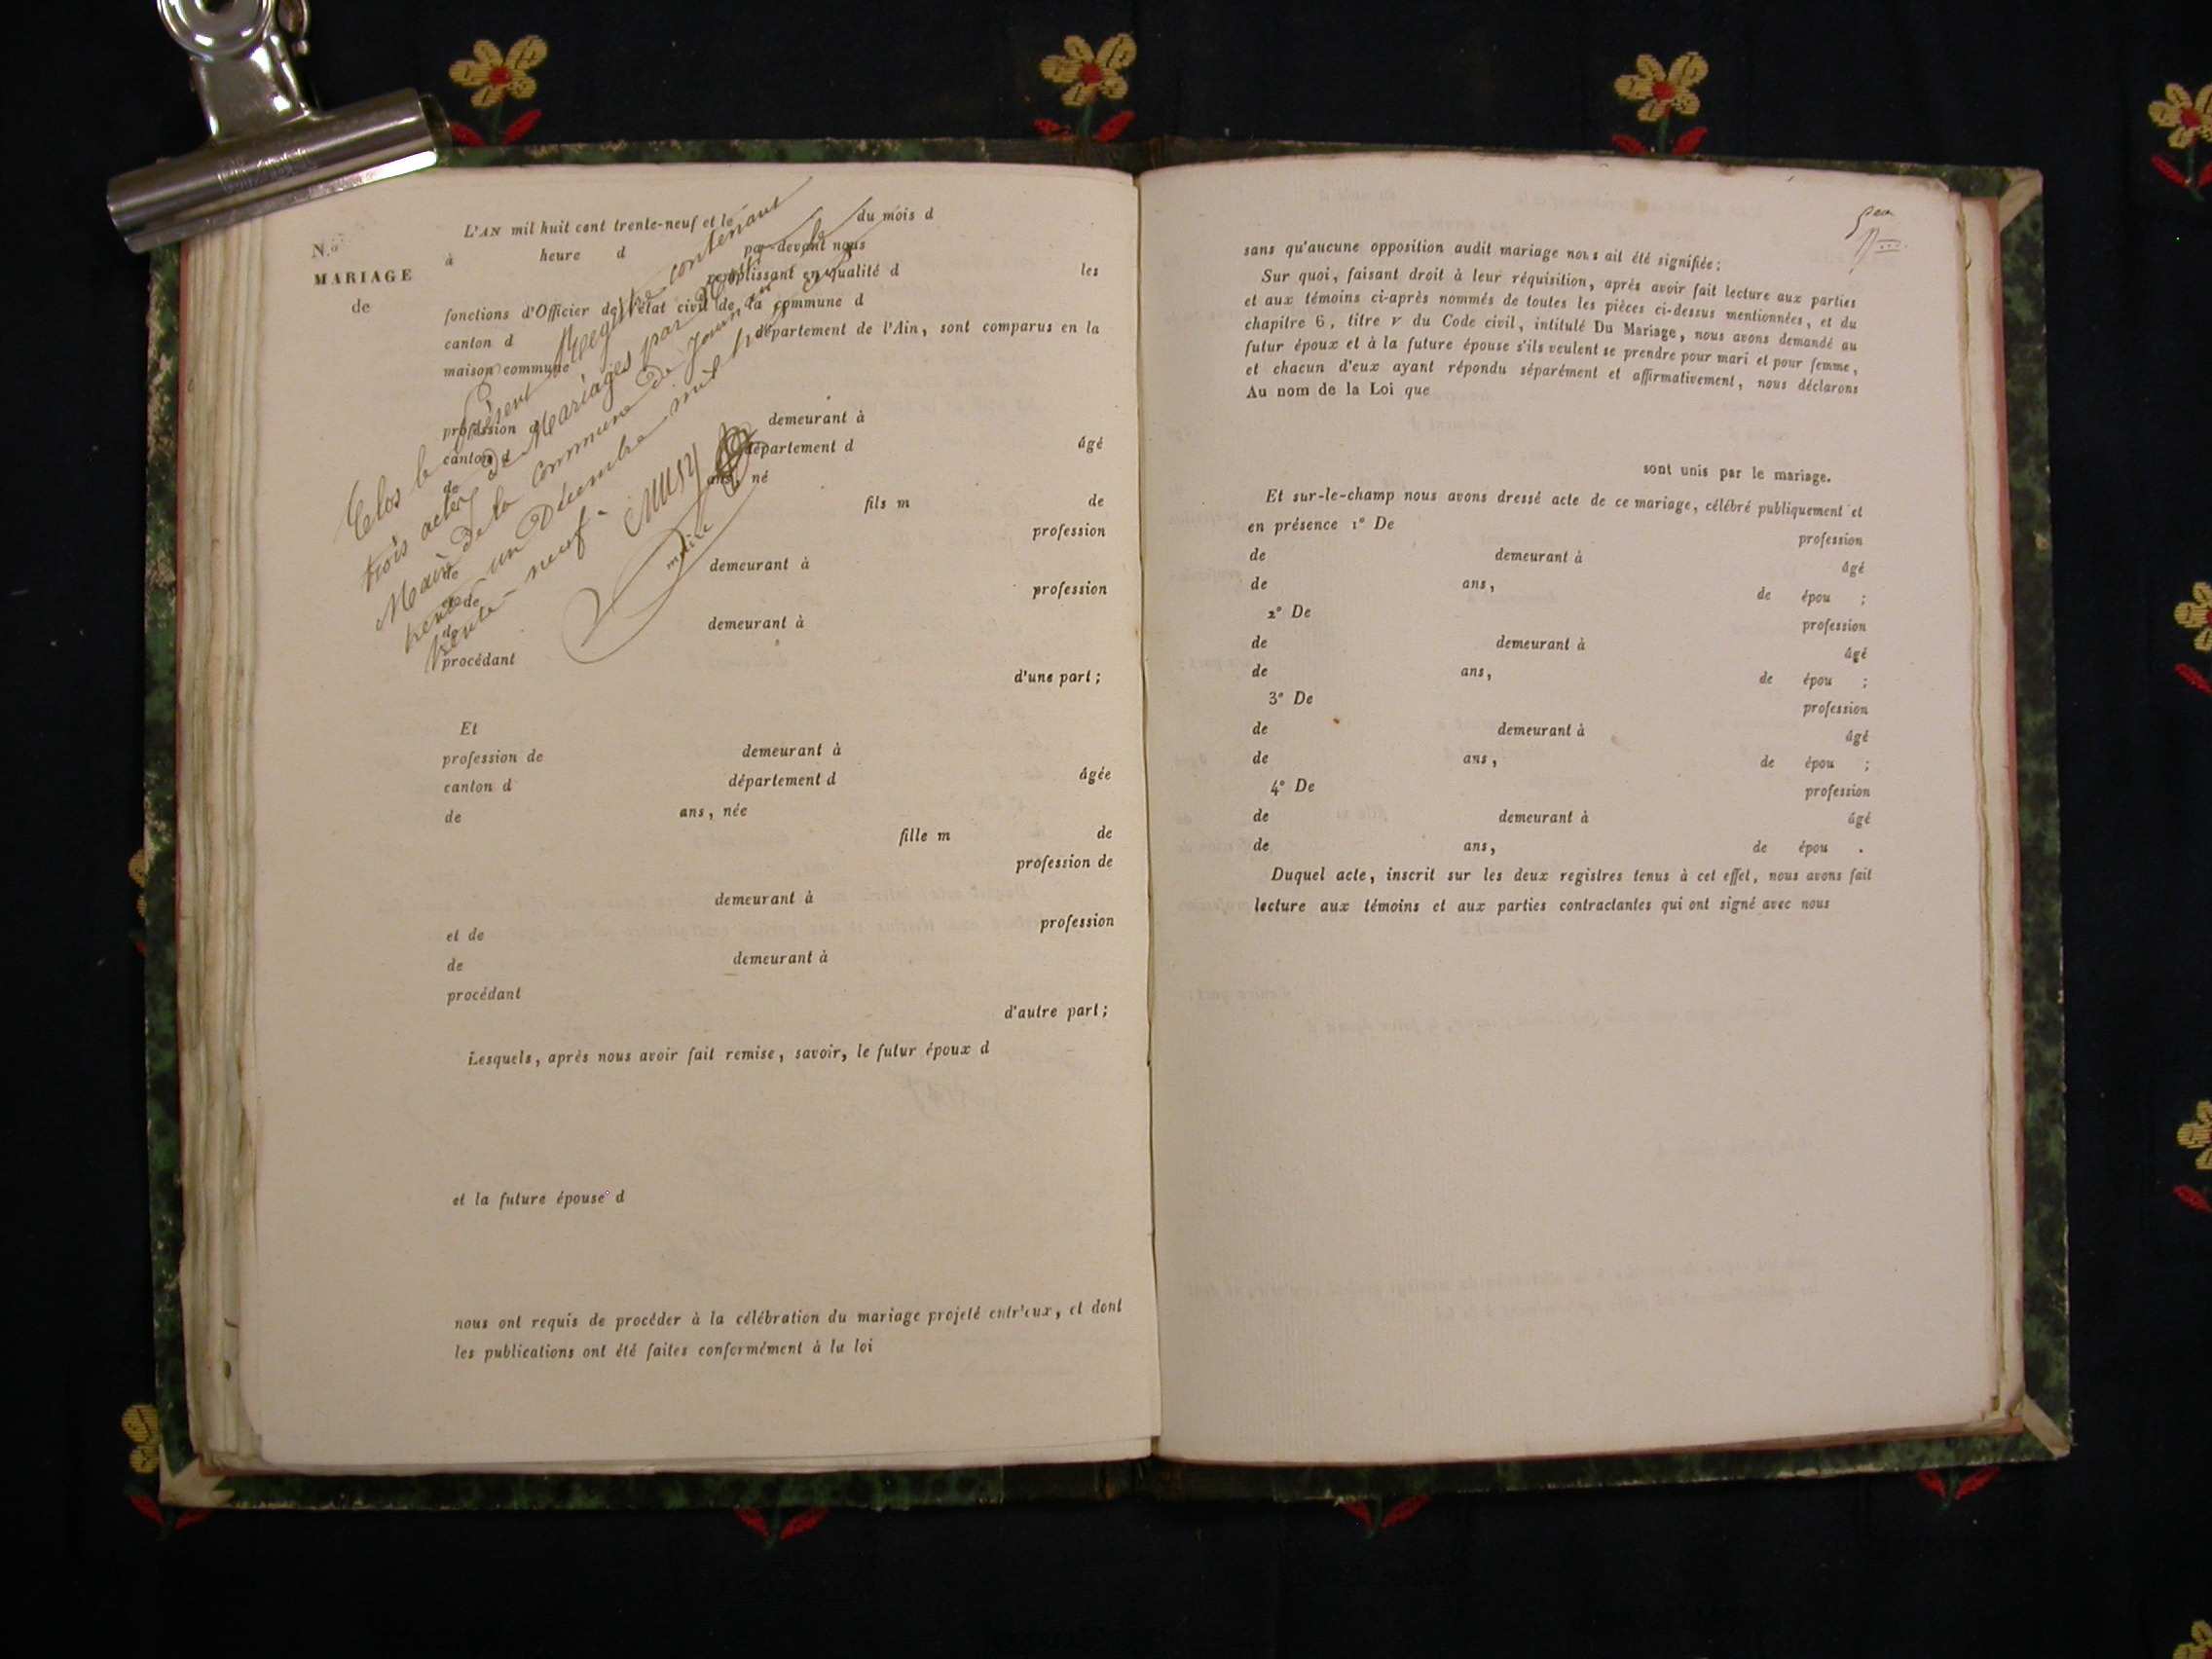 N.o
MARIAGE
de
L'AN mil huit cent trente-neuf et le du mois d
à heure d par-devant nous
remplissant en qualité d les
fonctions d'Officier de l'état civil de la commune d
canton d département de l'Ain, sont comparus en la
maison commune
demeurant à
profession d
canton d département d âgé
de ans, né
fils m de
profession
de demeurant à
et de profession
de demeurant à
procédant
d'une part;
Et
profession de demeurant à
canton d département d âgée
de ans, née
fille m de
profession de
demeurant à
et de profession
de demeurant à
procédant
d'autre part;
Lesquels, après nous avoir fait remise, savoir, le futur époux d
et la future épouse d
nous ont requis de procéder à la célébration du mariage projeté entr'eux, et dont
les publications ont été faites conformément à la loi
Clos le présent Registre contenant
trois actes de Mariages par
Maire de la Commune de le
trente un Décembre mil huit cent
trente-neuf.
MUSY
maire
sans qu'aucune opposition audit mariage nous ait été signifiée;
Sur quoi, faisant droit à leur réquisition, après avoir fait lecture aux parties
et aux témoins ci-après nommés de toutes les pièces ci-dessus mentionnées, et du
chapitre 6, titre V du Code civil, intitulé Du Mariage, nous avons demandé au
futur époux et à la future épouse s'ils veulent se prendre pour mari et pour femme,
et chacun d'eux ayant répondu séparément et affirmativement, nous déclarons
Au nom de la Loi que
sont unis par le mariage.
Et sur-le-champ nous avons dressé acte de ce mariage, célébré publiquement et
en présence 1° De
profession
de demeurant à âgé
de ans, de épou ;
2° De profession
de demeurant à âgé
de ans, de épou ;
3° De profession
de demeurant à âgé
de ans, de épou ;
4° De profession
de demeurant à âgé
de ans, de épou .
Duquel acte, inscrit sur les deux registres tenus à cet effet, nous avons fait
lecture aux témoins et aux parties contractantes qui ont signé avec nous